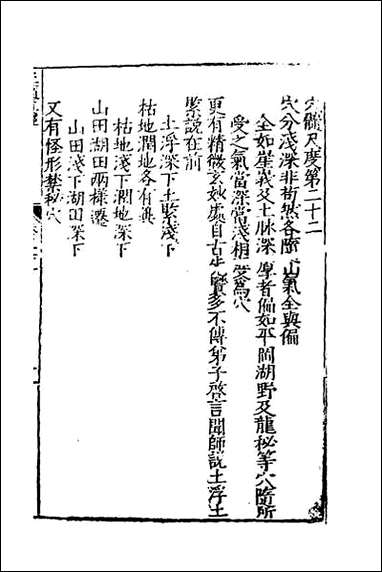 穴體尺度第二十二
穴分淺深非苟然各隨山氣全與偏
全如崖義及土脉深厚者偏如平岡湖野及龍秘等穴隨所
受之氣當深當淺相受爲穴
更有精微玄妙處自古步賢多不傳弟子啓言聞師説土浮土
緊説在前
土浮深下土緊淺下
枯地潤地各有異
枯地淺下潤地深下
山田湖田兩様遷
山田淺下湖田深下
又有怪形禁秘穴